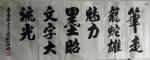 筆走
龍蛇雄
魅力
墨昭
文字大
流光